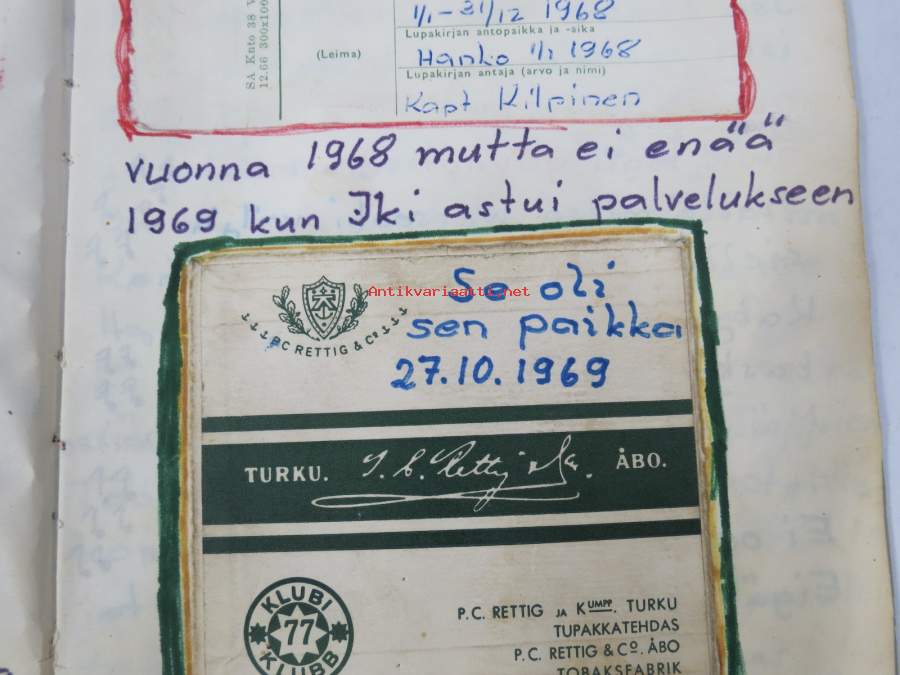 1/1-31/12 1968
Lupakirjan antopaikka ja -aika
SA Knto 38 V
12.66 300x100
(Leima)
Hanko 1/1 1968
Lupakirjan antaja (arvo ja nimi)
Kapt Kilpinen
vuonna 1968 mutta ei enää
1969 kun Iki astui palvelukseen
Se oli
Antikvariaatti.net
sen paikka
P.C. RETTIG & Cº
27.10.1969
TURKU. P. C. Rettig & Co. ÅBO.
KLUBI
77
KLUBB
P.C. RETTIG JA KUMPP. TURKU
TUPAKKATEHDAS
P.C. RETTIG & Cº. ÅBO
TOBAKSFABRIK